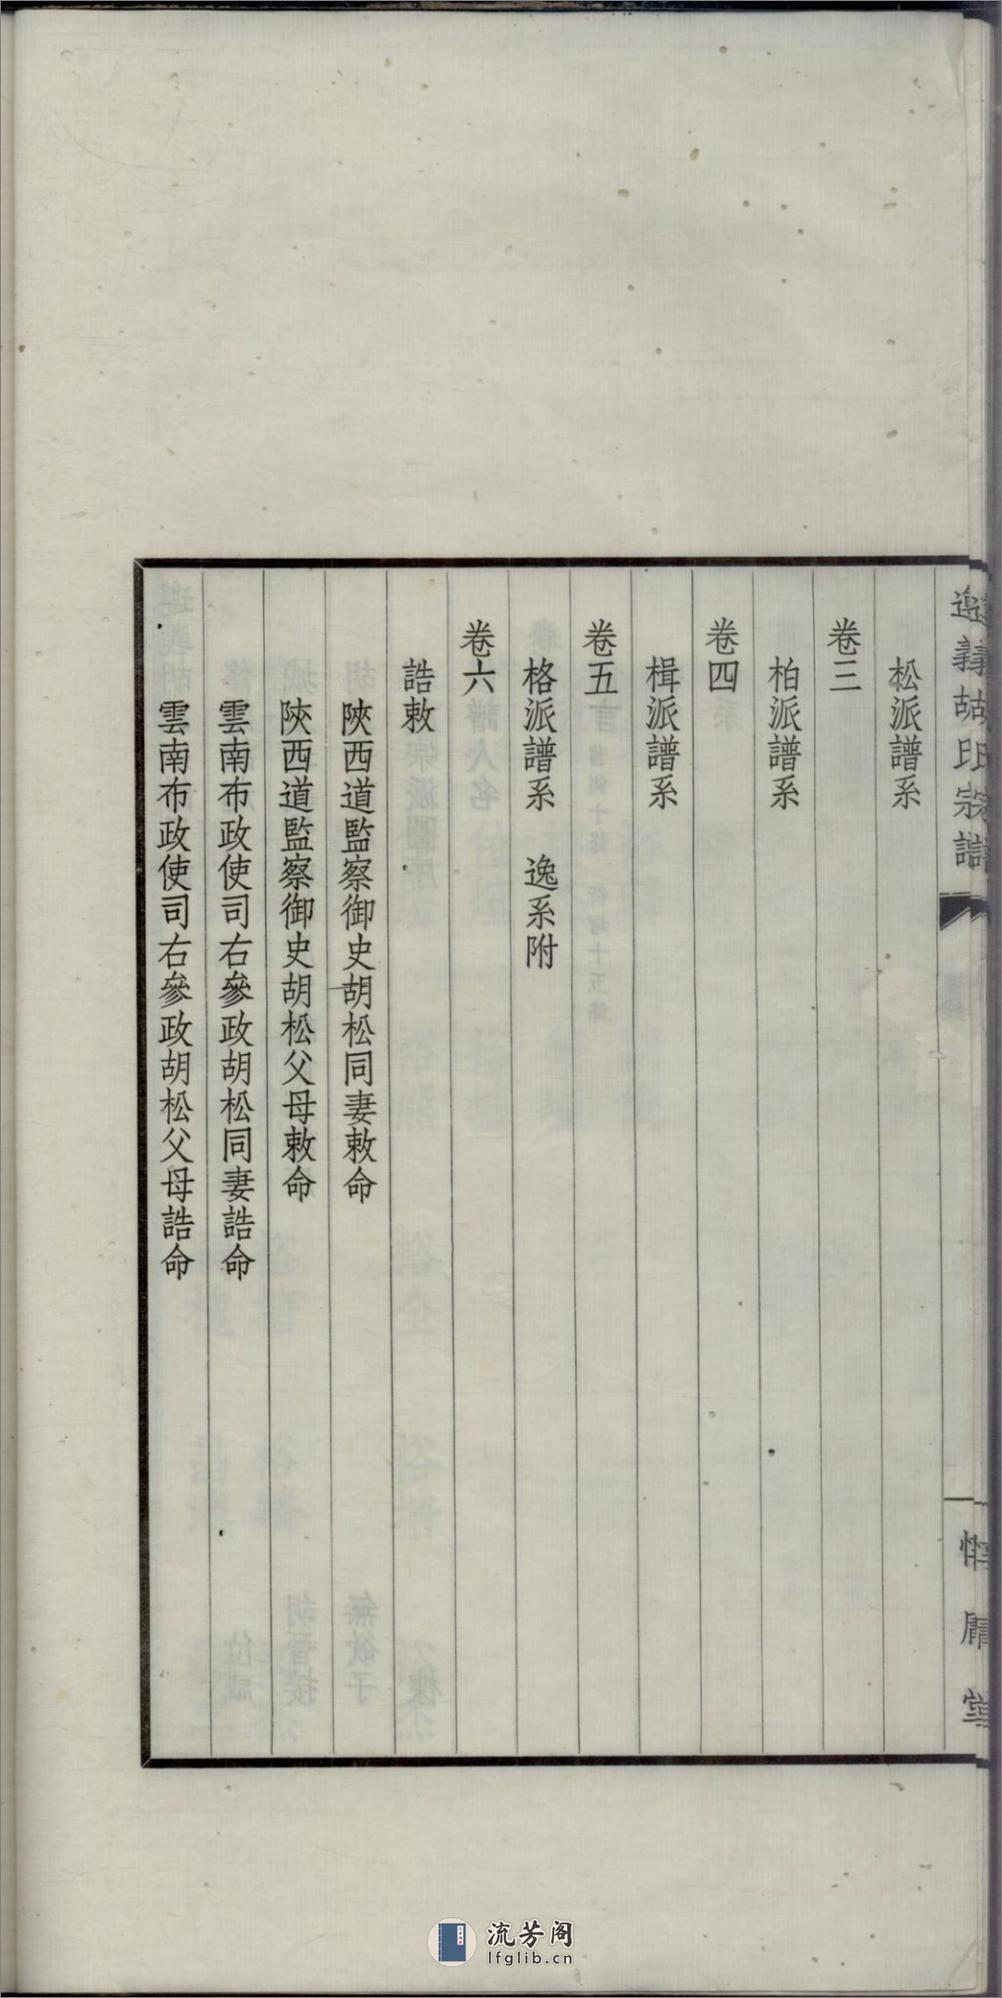 松派譜系
卷三
柏派譜系
卷四
楫派譜系
卷五
格派譜系　逸系附
卷六
誥敕
陝西道監察御史胡松同妻敕命
陝西道監察御史胡松父母敕命
雲南布政使司右參政胡松同妻誥命
雲南布政使司右參政胡松父母誥命
流芳阁
lfglib.cn